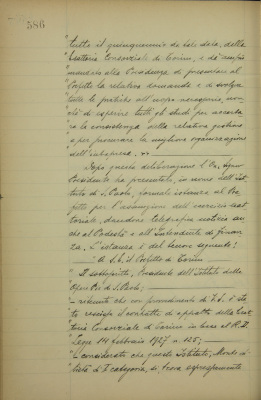 586
"tutto il quinquennio di sei solo, della
"Esattoria Consorziale di Torino, e di
"mandato alla Presidenza di presentare al
"Prefetto la relativa domanda e di svolgere
"tutte le pratiche all'uopo necessarie, non-
"chè di esperire tutti gli studi per accerta-
"re la consistenza della relativa gestione
"e per procurare la migliore organizzazione
"dell'intrapresa. "
Dopo questa deliberazione l'On. Signor
Presidente ha presentato, in nome dell'Isti-
tuto di S. Paolo, formale istanza al Pre-
fetto per l'assunzione dell'esercizio esat-
toriale, dandone telegrafica notizia an-
che al Podestà e all'Intendente di finan-
za. L'istanza è del tenore seguente:
"A S. E. il Prefetto di Torino
"Il sottoscritto, Presidente dell'Istituto delle
"Opere Pie di S. Paolo;
"- ritenuto che con provvedimento di V. E. è sta-
"to rescisso il contratto di appalto della Esat-
"toria Consorziale di Torino in base al R. D.
"Legge 14 febbraio 1927 n. 125;
"- considerato che questo Istituto, Monte di
"I categoria, si trova espressamente